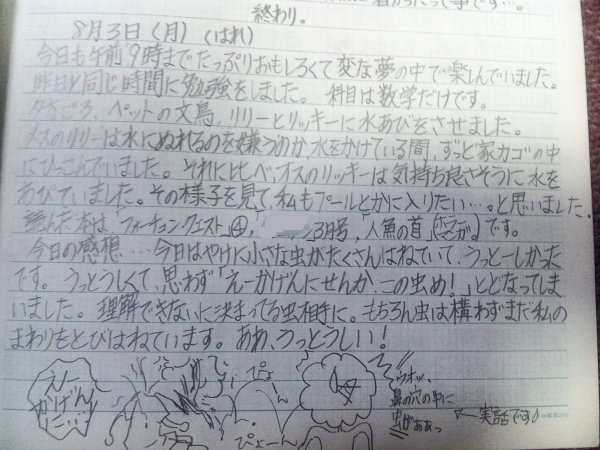 終わり。
8月3日(月) (はれ)
今日も午前9時までたっぷりおもしろくて変な夢の中で楽しんでいました。
昨日と同じ時間に勉強をしました。 科目は数学だけです。
夕方ごろ、ペットの文鳥、リリーとリッキーに水あびをさせました。
メスのリリーは水にぬれるのを嫌うのか、水をかけている間、ずっと家カゴの中
にひっこんでいました。それに比べオスのリッキーは気持ち良さそうに水を
あびていました。その様子を見て、私もプールとかに入りたい…。と思いました。
読んだ本は、「フォーチュンクエスト④」、「 3月号」、「人魚の首」です。
今日の感想…今日はやけに小さな虫がたくさんはねていて、うっとーしかった
です。うっとうしくて、思わず「えーかげんにせんか、この虫め!」とどなってしま
いました。理解できないに決まってる虫相手に。もちろん虫は構わずまだ私の
まわりをとびはねています。あぁ、うっとうしい!
えー
かげん
に…
ぴょん
ぴょーん
ウオッ、
鼻の穴の中に
虫がああっ
←実話です♪